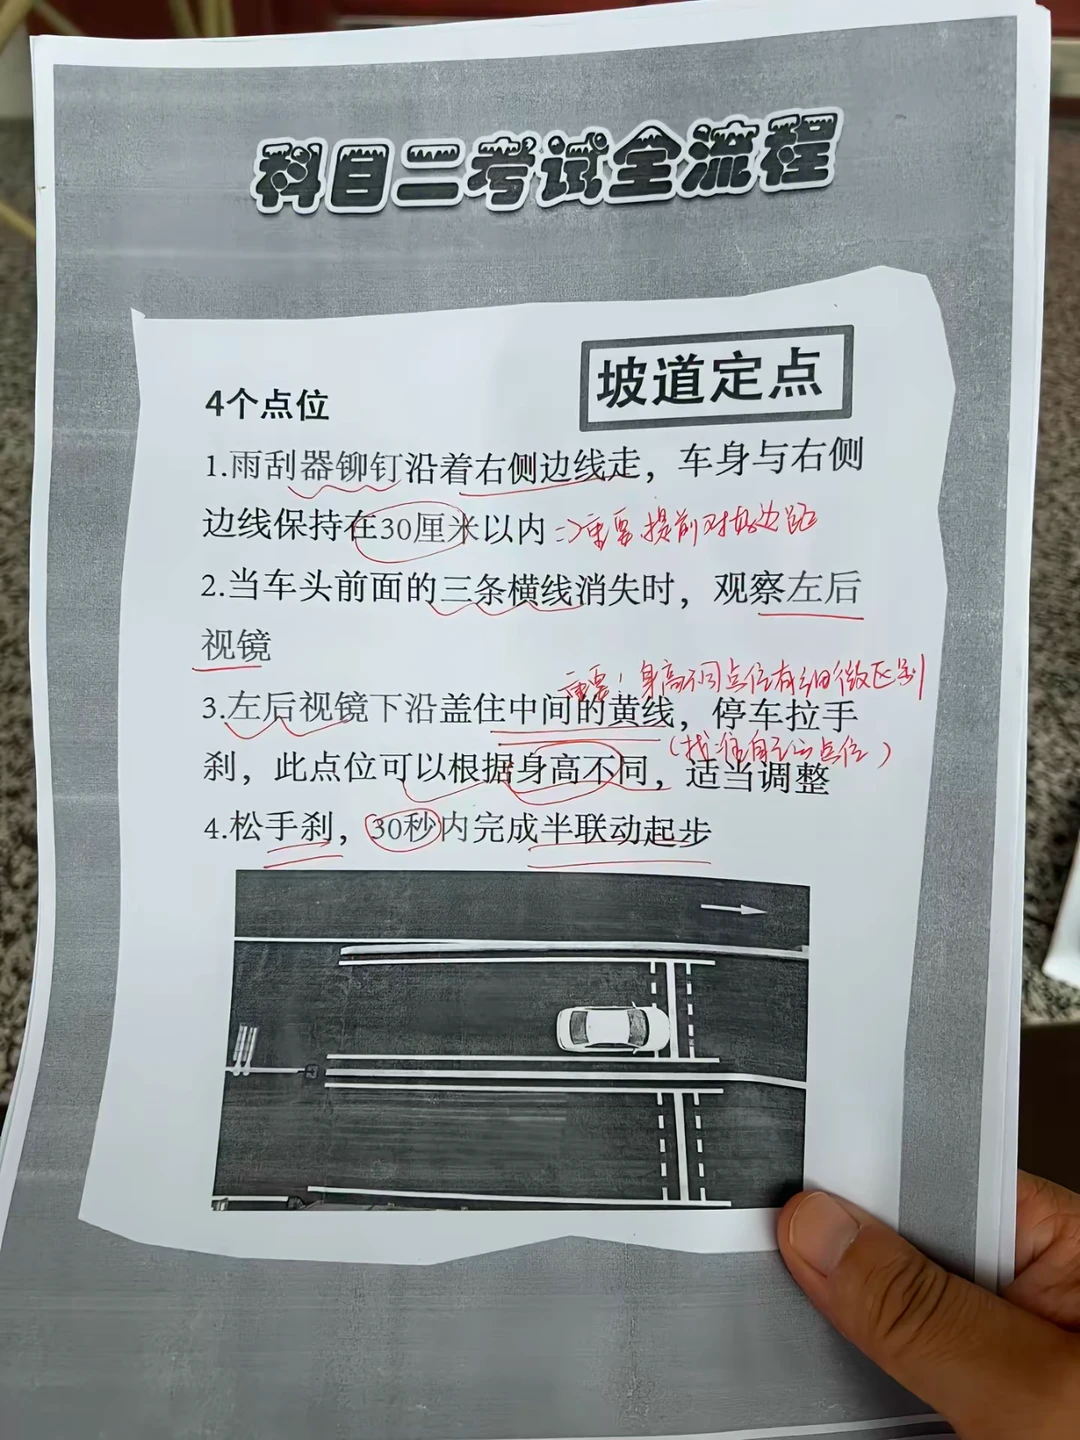 科目二考试全流程
坡道定点
4个点位
1.雨刮器铆钉沿着右侧边线走，车身与右侧
边线保持在30厘米以内 => 重要 提前对好边距
2.当车头前面的三条横线消失时，观察左后
视镜
重要！身高不同点位有细微区别
3.左后视镜下沿盖住中间的黄线，停车拉手
(找准自己的点位)
刹，此点位可以根据身高不同，适当调整
4.松手刹，30秒内完成半联动起步